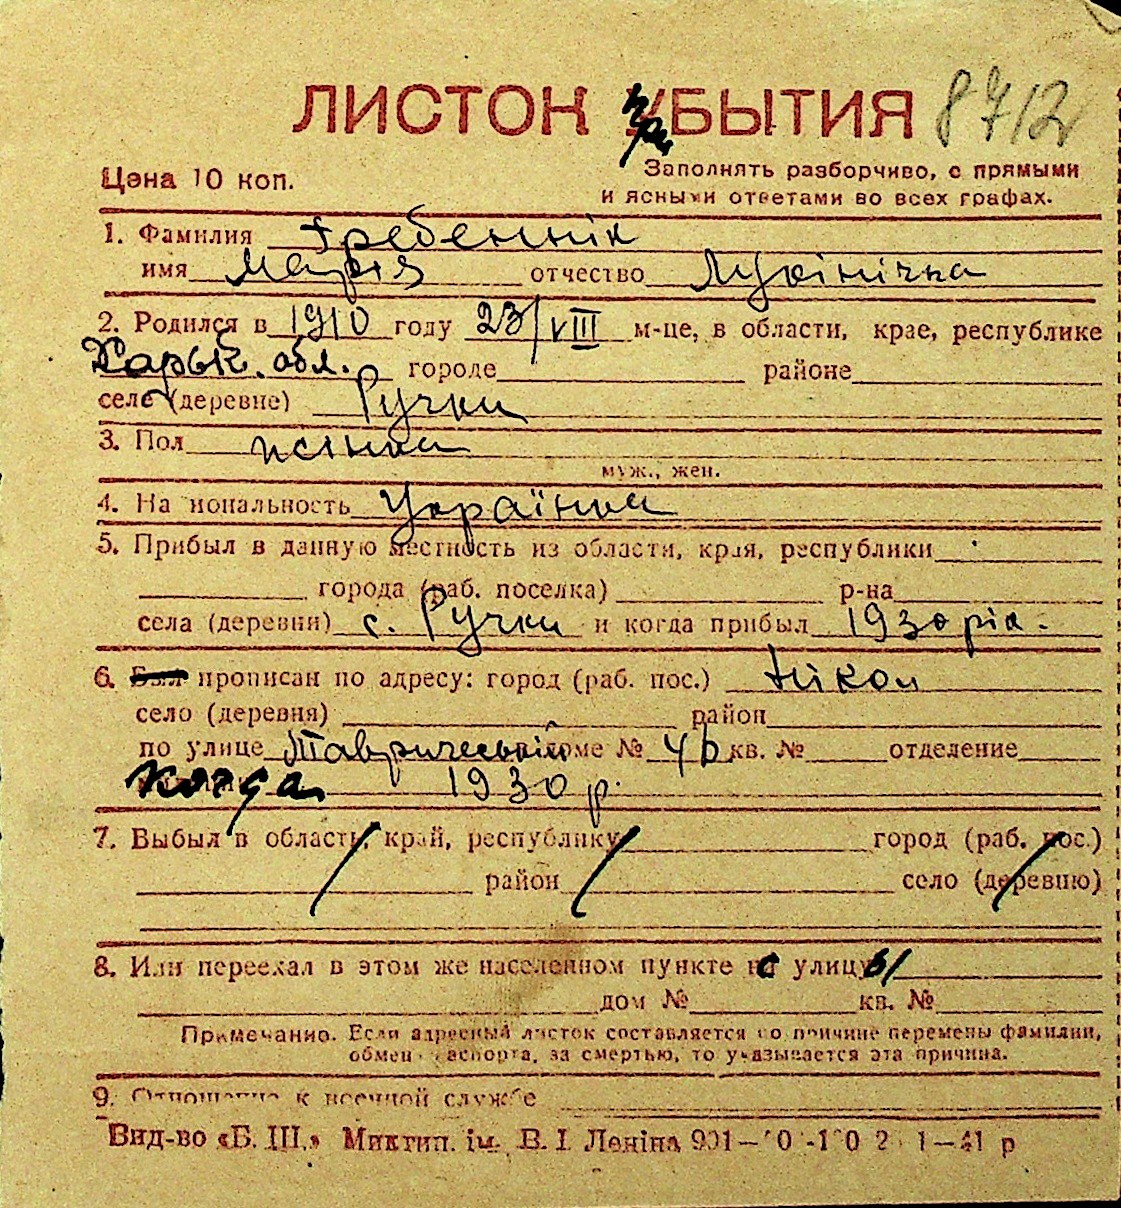 ЛИСТОК прБЫТИЯ 8712
Цена 10 коп.
Заполнять разборчиво, с прямыми
и ясными ответами во всех графах.
1. Фамилия Гребеннік
имя Марія отчество
2. Родился в 1910 году 23/VIII м-це, в области, крае, республике
Харьк. обл. городе районе
селе (деревне) Ручки
3. Пол жінка
муж., жен.
4. Национальность Українка
5. Прибыл в данную местность из области, края, республики
города (раб. поселка) р-на
села (деревни) с. Ручки и когда прибыл 1930 рік.
6. Был прописан по адресу: город (раб. пос.) Нікоп
село (деревня) район
по улице Тавричеській доме № 46 кв. № отделение
когда 1930 р.
7. Выбыл в область, край, республику город (раб. пос.)
район село (деревню)
8. Или переехал в этом же населенном пункте с улицы
дом № кв. №
Примечание. Если адресный листок составляется по причине перемены фамилии,
обмен паспорта, за смертью, то указывается эта причина.
9. Отношение к военной службе
Вид-во «Б. Ш.» Миктип. ім. В. І. Леніна